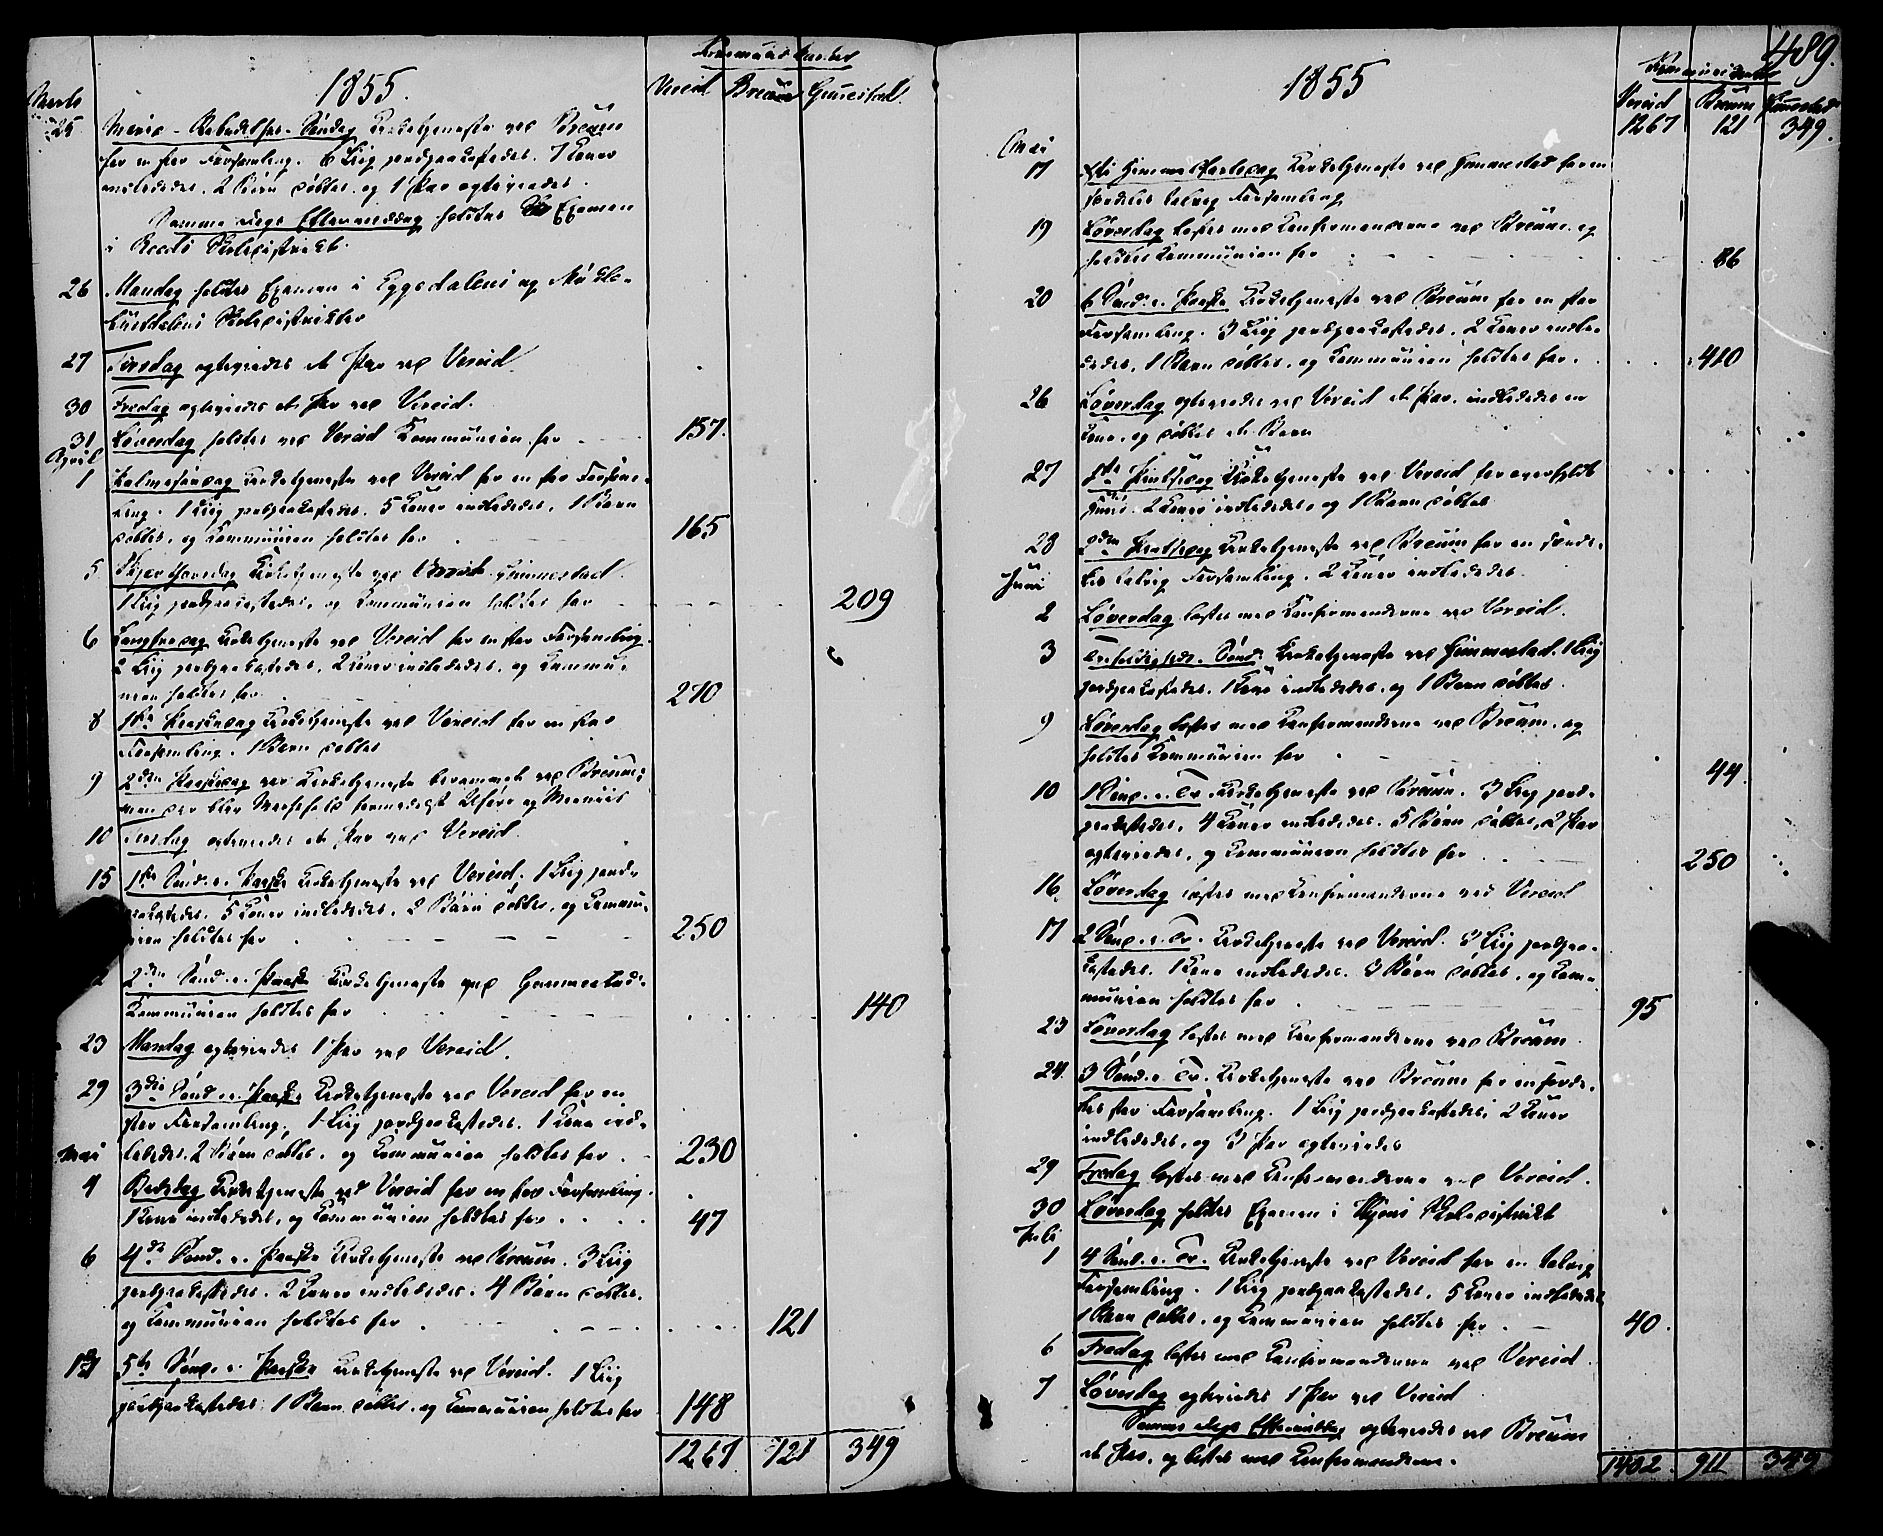 1855.
Kommunikanter
Vereid Breüm Gimmestad.
Marts
25 Mariæ-Bebudelses-Søndag Kirketjeneste ved Breüm
for en stor Forsamling. 6 Liig jordpaakastedes. 7 Koner
indlededes. 2 Børn døbtes og 1 Par egteviedes.
Samme Dags Eftermiddag holdtes Examen
i Reeds Skoledistrikt.
26 Mandag holdtes Examen i Eggedalens og
Skoledistrikter
27 Tirsdag egteviedes et Par ved Vereid.
30 Fredag egteviedes et Par ved Vereid.
31 Løverdag holdtes ved Vereid Kommünion for 157.
April
1 Palmesøndag Kirketjeneste ved Vereid for en stor Forsam-
ling. 1 Liig jordpaakastedes. 5 Koner indlededes, 1 Barn
døbtes, og Kommünion holdtes for 165
5 Skjærthorsdag Kirketjeneste ved Gimmestad.
1 Liig jordpaakastedes, og Kommünion holdtes for 209
6 Langfredag Kirketjeneste ved Vereid for en stor Forsamling.
2 Liig jordpaakastedes, 2 Koner indlededes, og Kommü-
nion holdtes for 270
8 1ste Paaskedag Kirketjeneste ved Vereid for en stor
Forsamling. 1 Barn døbtes
9 2den Paaskedag var Kirketjeneste berammet ved Breüm;
men der blev Messefald formedelst Uføre og
10 Tirsdag egteviedes et Par ved Vereid.
15 1ste Sønd. e. Paaske Kirketjeneste ved Vereid. 1 Liig jord-
paakastedes. 5 Koner indlededes, 2 Børn døbtes, og Kommü-
nion holdtes for 250
2den Sønd. e. Paaske Kirketjeneste ved Gimmestad.
Kommünion holdtes for 140
23 Mandag egteviedes 1 Par ved Vereid.
29 3die Sønd. e. Paaske Kirketjeneste ved Vereid for en
stor Forsamling, 1 Liig jordpaakastedes. 1 Kone ind-
lededes, 2 Børn døbtes, og Kommünion holdtes for 230
Mai
4 Bededag Kirketjeneste ved Vereid for en stor Forsamling.
1 Kone indlededes, og Kommünion holdtes for 47
6 4de Sønd. e. Paaske Kirketjeneste ved Breüm. 3 Liig
jordpaakastedes. 2 Koner indlededes. 4 Børn døbtes.
og Kommünion holdtes for 121
5te Sønd. e. Paaske Kirketjeneste ved Vereid. 1 Liig
jordpaakastedes. 1 Barn døbtes, og Kommünion holdtes for 148
1267 121 349
489.
1855
Kommunikanter
Vereid Breüm Gimmestad
1267 121 349.
Mai
17 Chr. Himmelfartsdag Kirketjeneste ved Gimmestad for en
særdeles talrig Forsamling
19 Løverdag læstes med Konfirmanderne ved Breüm. og
holdtes Kommünion for 86
20 6 Sønd. e. Paaske Kirketjeneste ved Breüm for en stor
Forsamling. 3 Liig jordpaakastedes. 2 Koner indle-
dedes, 1 Barn døbtes, og Kommünion holdtes for. 410
26 Løverdag egteviedes ved Vereid et Par, indlededes en
Kone, og døbtes et Barn
27 1ste Pintsedag Kirketjeneste ved Vereid for overfyldt
Huus. 2 Koner indlededes, og 1 Barn døbtes
28 2den Pintsedag Kirketjeneste ved Breüm for en særde-
les talrig Forsamling. 2 Koner indlededes.
Juni
2 Løverdag læstes med Konfirmanderne ved Vereid.
3 Trefoldigheds-Sønd. Kirketjeneste ved Gimmestad. 1 Liig
jordpaakastedes. 1 Kone indlededes, og 1 Barn døbtes.
9 Løverdag læstes med Konfirmanderne ved Breüm, og
holdtes Kommünion for 44
10 1 Sønd. e. Tr. Kirketjeneste ved Breüm. 3 Liig jord-
paakastedes, 4 Koner indlededes. 5 Børn døbtes, 2 Par
egteviedes, og Kommünion holdtes for 250
16 Løverdag læstes med Konfirmanderne ved Vereid
17 2 Sønd. e. Tr. Kirketjeneste ved Vereid. 3 Liig jordpaa-
kastedes. 1 Kone indlededes. 3 Børn døbtes, og Kom-
münion holdtes for 95
23 Løverdag læstes med Konfirmanderne ved Breüm
24. 3 Sønd. e. Tr. Kirketjeneste ved Breüm for en særde-
les stor Forsamling. 1 Liig jordpaakastedes; 2 Koner
indlededes, og 3 Par egteviedes
29 Fredag læstes med Konfirmanderne ved Vereid.
30 Løverdag holdtes Examen i Hyens Skoledistrikt
Juli
1 4 Sønd. e. Tr. Kirketjeneste ved Vereid for en talrig
Forsamling. 1 Liig jordpaakastedes, 5 Koner indlededes
1 Barn døbtes, og Kommünion holdtes for 40.
6 Fredag læstes med Konfirmanderne ved Vereid.
7 Løverdag egteviedes 1 Par ved Vereid
Samme Dags Eftermiddag egteviedes ved Breüm
et Par, og læstes med Konfirmanderne.
1402. 911 349